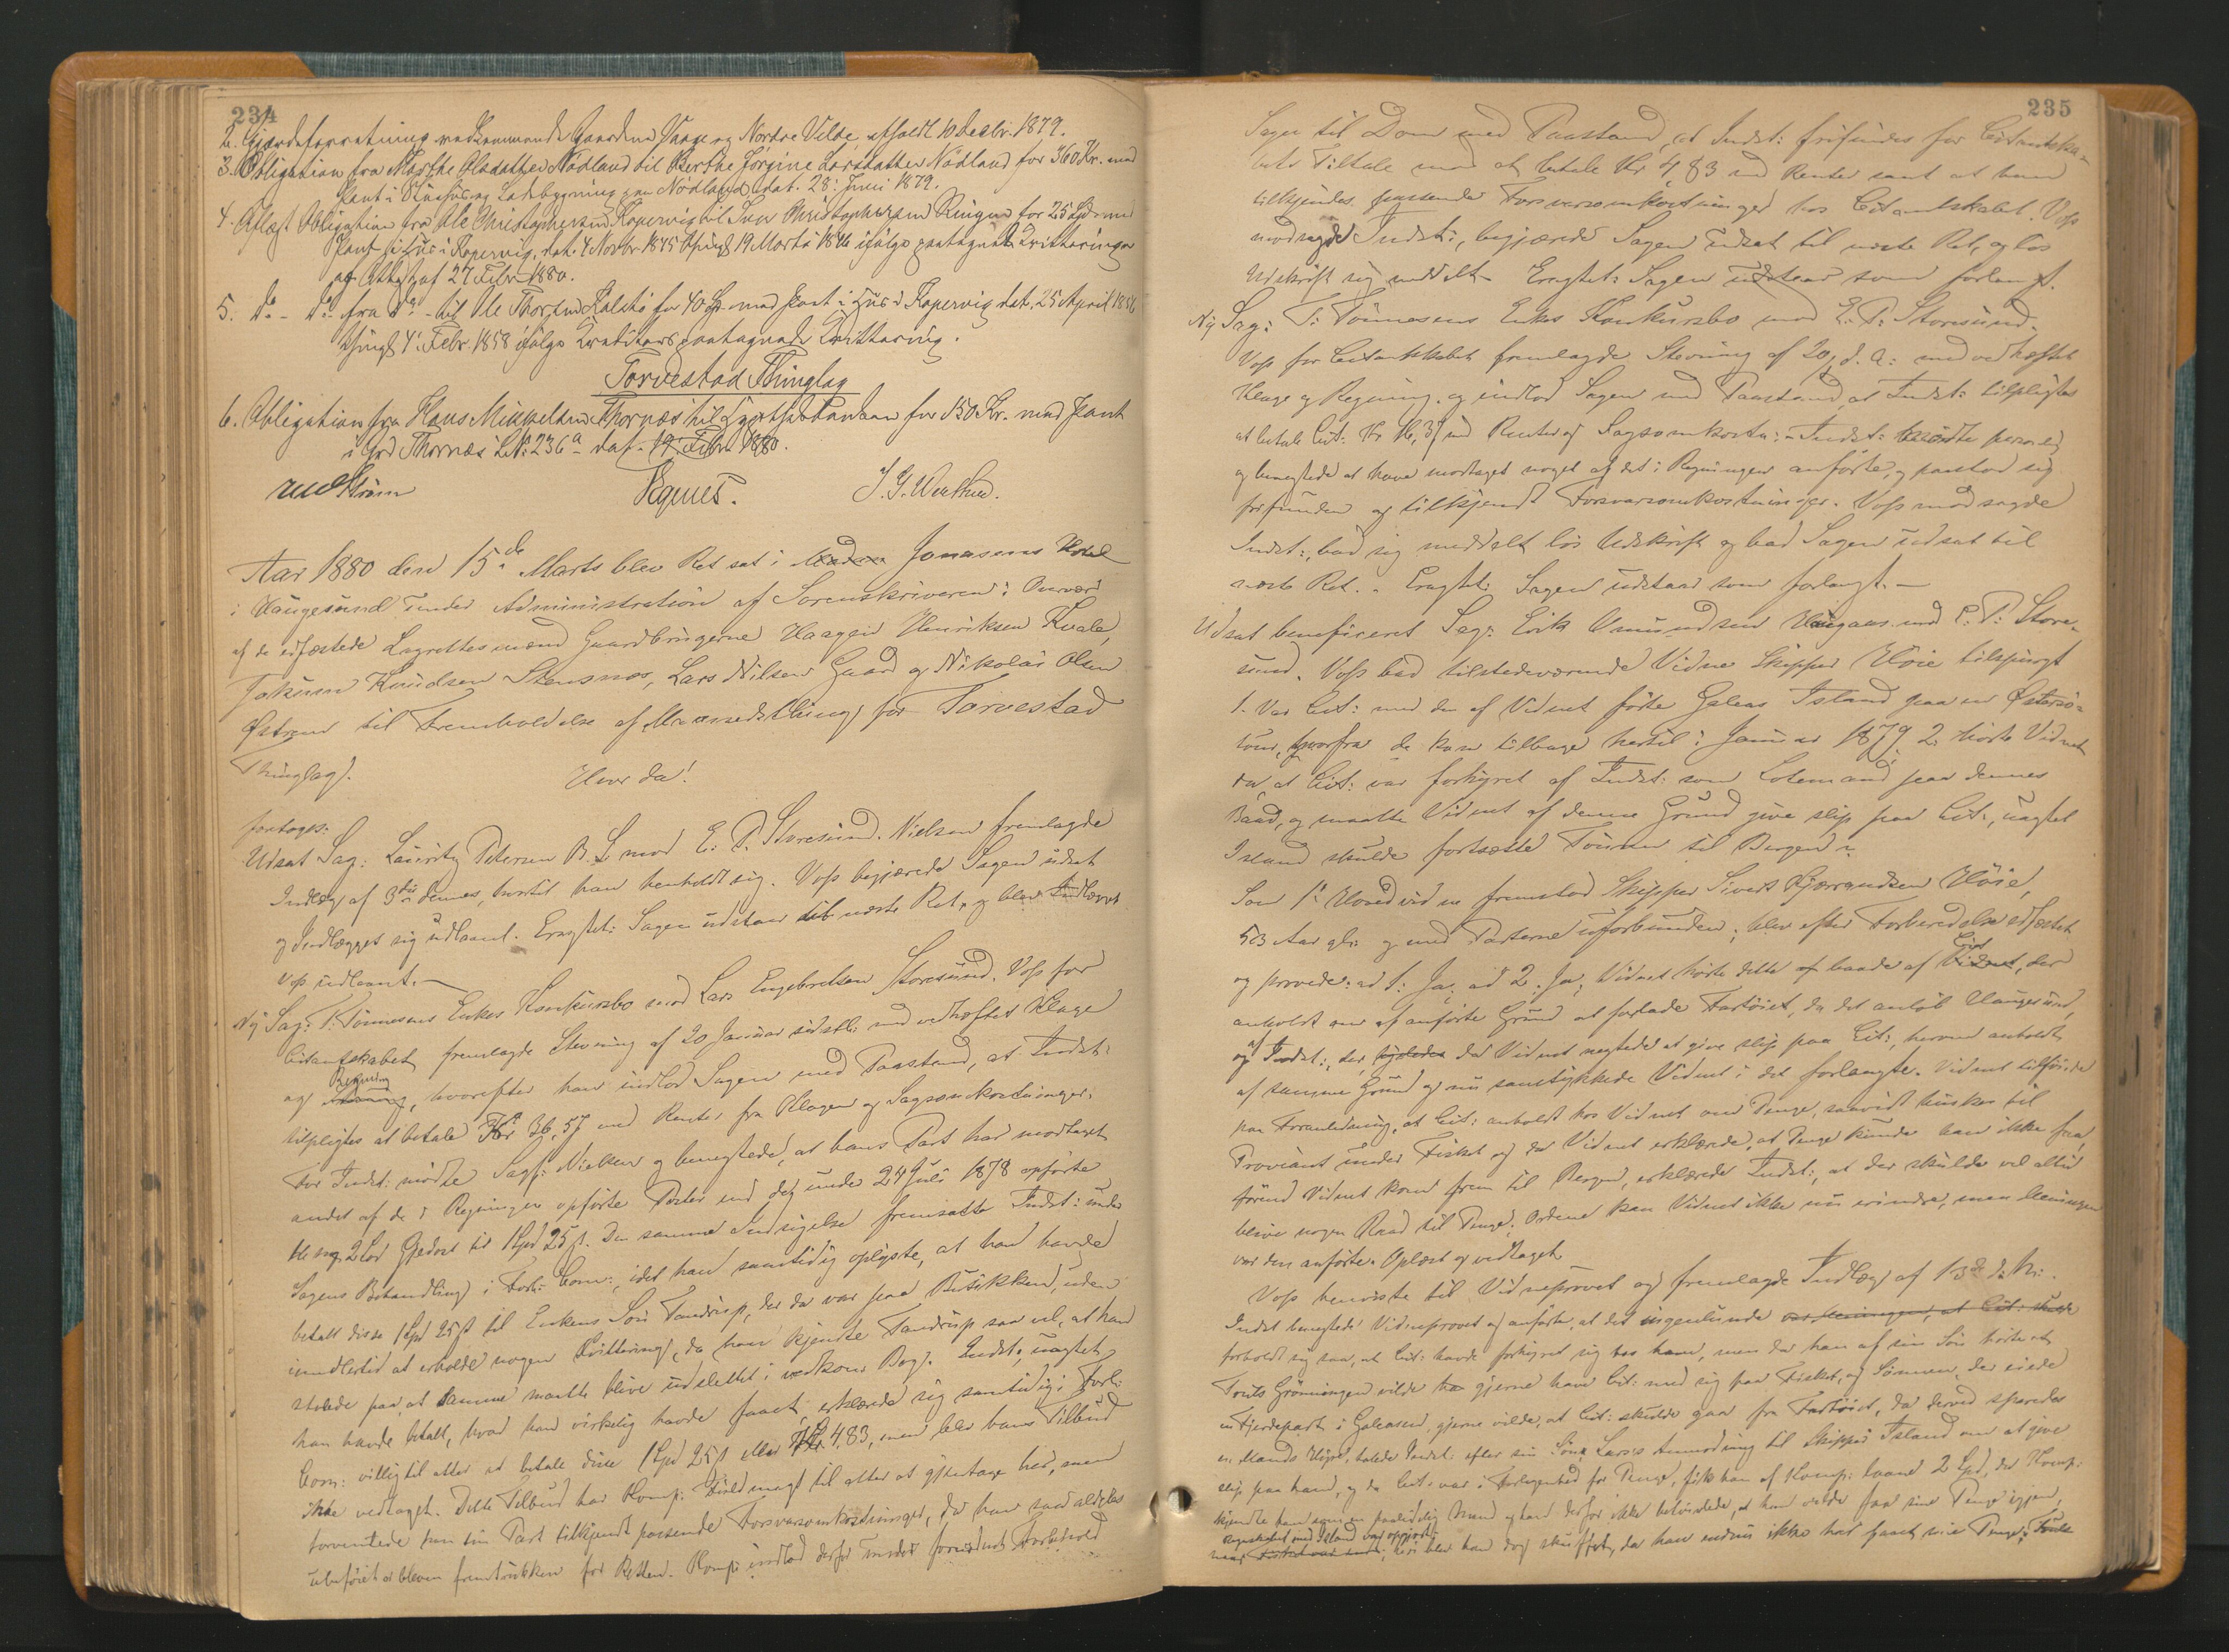 234
2. Gjerdeforretning vedkommende Gaardene Vaage og Nordre Velde, afholdt 10 Decbr. 1879.
3. Obligation fra Marthe Oladatter Nödland til Berthe Jörgine Larsdatter Nödland for 360 Kr. mod
Pant i Huuse og Ladebygning paa Nödland, dat. 28: Juni 1879.
4. Aflæst Obligation fra Ole Christophersen Kopervig til Iver Christophersen Ringen for 25 Spd. mod
Pant i Huus i Kopervig, dat. 4 Novbr 1845 thingl. 19 Marts 1846 ifölge paategnede Qvitteringer
og Attest af 27 Febr. 1880.
5. Do - Do fra Do - til Ole Thorsen Kalstö for 40 Sp. mod Pant i Huus i Kopervig dat. 25 April 1856
thingl. 4: Febr. 1858 ifölge Creditors paategnede Qvittering.
Torvestad Thinglag
6. Obligation fra Hans Mikkelsen Thornæs til Hypothekbanken for 150 Kr. mod Pant
i Grd Thornæs L. No. 236a - dat. 19 Febr. 1880.
J. G. Werther.
Aar 1880 den 15de Marts blev Ret sat i Jonasens Hotel
i Haugesund under Administration af Sorenskriveren i Overvær
af de edfæstede Lagrettesmænd Gaardbrugerne Haagen Henriksen Kvale,
Jakum Knudsen Stensnes, Lars Nilsen Gaard og Nikolai Olsen
Östrem til Fremholdelse af Maanedsthing for Torvestad
Thinglag.
Hvor da!
foretoges:
Udsat Sag: Lauritz Petersen B. L. mod E. P. Storesund. Nielsen fremlagde
Indlæg af 3die dennes, hvortil han henholdt sig. Voss begjærede Sagen udsat
og Indlægget sig udlaant. Eragtet: Sagen udstaar til næste Ret, og blev Indlægget
Voss udlaant. —
Ny Sag: T. Tönnesens Enkes Konkursbo mod Lars Engebretsen Storesund. Voss for
Citantskabet fremlagde Stevning af 20 Januar sidstl: med vedhæftet Klage
og Regning, hvorefter han indlod Sagen med Paastand, at Indst:
tilpligtes at betale Kr 36,57 med Renter fra Klagen og Sagsomkostninger.
For Indst: mödte Sagf: Nielsen og benegtede, at hans Part har modtaget
andet af de i Regningen opförte Poster end det under 24 Juli 1878 opförte
2 Lod til 1 Spd 25 s. Den samme Indsigelse fremsatte Indst: under
Sagens Behandling i Forl: Com:, idet han samtidig oplyste, at han havde
betalt disse 1 Spd 25 s til Enkens Sön Tandrup, der da var paa Butikken, uden
imidlertid at erholde nogen Qvittering, da han kjendte Tandrup saa vel, at han
stolede paa, at Samme maatte blive udslettet i vedkom: Bog. Indst:, uagtet
han havde betalt, hvad han virkelig havde faaet, erklærede sig samtidig i Forl:
Com: villig til atter at betale disse 1 Spd 25 s eller Kr. 4,83, men blev hans Tilbud
ikke vedtaget. Dette Tilbud har Komp: Fuldmagt til atter at gjentage her, men
forventede han sin Part tilkjendt passende Forsvarsomkostninger, da han saa aldeles
uberföiet er bleven fremtrukken for Retten. Komp: indlod derfor under fornödent Forbehold
235
Sagen til Dom med Paastand, at Indst: frifindes for Citantska-
bets Tiltale mod at betale Kr 4,83 med Renter samt at ham
tilkjendes passende Forsvarsomkostninger hos Citantskabet. Voss
modsagde Indst:, begjærede Sagen udsat til næste Ret, og lös
Udskrift sig meddelt. Eragtet: Sagen udstaar som forlangt.
Ny Sag: T. Tönnesens Enkes Konkursbo mod E. P. Storesund.
Voss for Citantskabet fremlagde Stevning af 20/1 d. A: med vedhæftet
Klage og Regning, og indlod Sagen med Paastand, at Indst: tilpligtes
at betale Cit: Kr med Renter og Sagsomkostn: - Indst: mödte personlig
og benegtede at have modtaget noget af det i Regningen anförte, og paastod sig
frifunden og tilkjendt Forsvarsomkostninger. Voss modsagde
Indst:, bad sig meddelt lös Udskrift og bad Sagen udsat til
næste Ret. - Eragtet: Sagen udstaar som forlangt. —
Udsat beneficeret Sag: Erik Omundsen Haugaas mod E. P. Store-
sund. Voss bad tilstedeværende Vidne Skipper Höie tilspurgt
1. Var Cit: med den af Vidnet förte Galeas Island paa en Östersö-
tour, hvorfra de kom tilbage hertil i Januar 1879. 2. hörte Vidnet
da, at Cit: var forhyret af Indst: som Lotsmand paa dennes
Baad, og maatte Vidnet af denne Grund give slip paa Cit:, uagtet
Island skulde fortsætte Touren til Bergen?
Som 1te Hovedvidne fremstod Skipper Sivert Gjerandsen Höie,
53 Aar gl: og med Parterne uforbunden; blev efter Forberedelse edfæstet
og provede: ad 1: Ja; ad 2. Ja; Vidnet hörte dette baade af Cit, der
anholdt om af anförte Grund at forlade Fartöiet, da det anlöb Haugesund,
og af Indst:, der, da Vidnet negtede at give slip paa Cit:, herom anholdt
af samme Grund og nu samtykkede Vidnet i det forlangte. Vidnet tilföiede
paa Foranledning, at Cit: anholdt hos Vidnet om Penge, saavidt huskes til
Proviant under Fisket og da Vidnet erklærede, at Penge kunde han ikke faa,
förend Vidnet kom frem til Bergen, erklærede Indst:, at der skulde vel altid
blive nogen Raad til Penge. Ordene kan Vidnet ikke nu erindre, men Meningen
var den anförte. Oplæst og vedtaget.
Voss henviste til Vidneprovet og fremlagde Indlæg af 13de d. M:.
Indst benegtede Vidneprovet og anförte, at det ingenlunde var Meningen, at Cit: skulde
forholdt sig saa, at Cit: havde forhyret sig hos ham, men da han af sin Sön hörte at
Grönningen vilde gjerne have Cit: med sig paa Fisket, og Sönnen, der eiede
en Fjerdepart i Galeasen, gjerne vilde, at Cit: skulde gaa fra Fartöiet, da derved sparedes
en Mands Hyre, talede Indst: efter sin Sön Lars's Anmodning til Skipper Island om at give
slip paa ham, og da Cit: var i Forlegenhed for Penge, fik han af Komp: laant 2 Spd, da Komp:
kjendte ham som en paalidelig Mand og han derfor ikke betvivlede, at han vilde faa sine Penge igjen,
Regnskabet med Island var opgjort;
naar heri blev han dog skuffet, da han endnu ikke har faaet sine Penge.